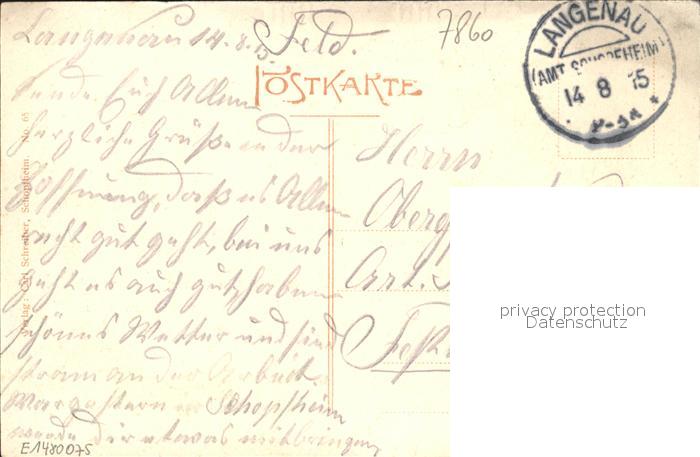 Langenau 14.8.15.
Feld.
7860
LANGENAU
(AMT SCHOPFHEIM)
14 8 15
POSTKARTE
Sende Euch Allen
herzliche Grüße in der
Hoffnung, daß es Allen
recht gut geht, bei uns
geht es auch gut, haben
schönes Wetter und sind
stramm an der Arbeit.
War gestern in Schopfheim
werde Dir etwas mitbringen
Verlag: Carl Schreiber, Schopfheim. No. 65
Herrn
Oberg
Art.
privacy protection
Datenschutz
E1480075